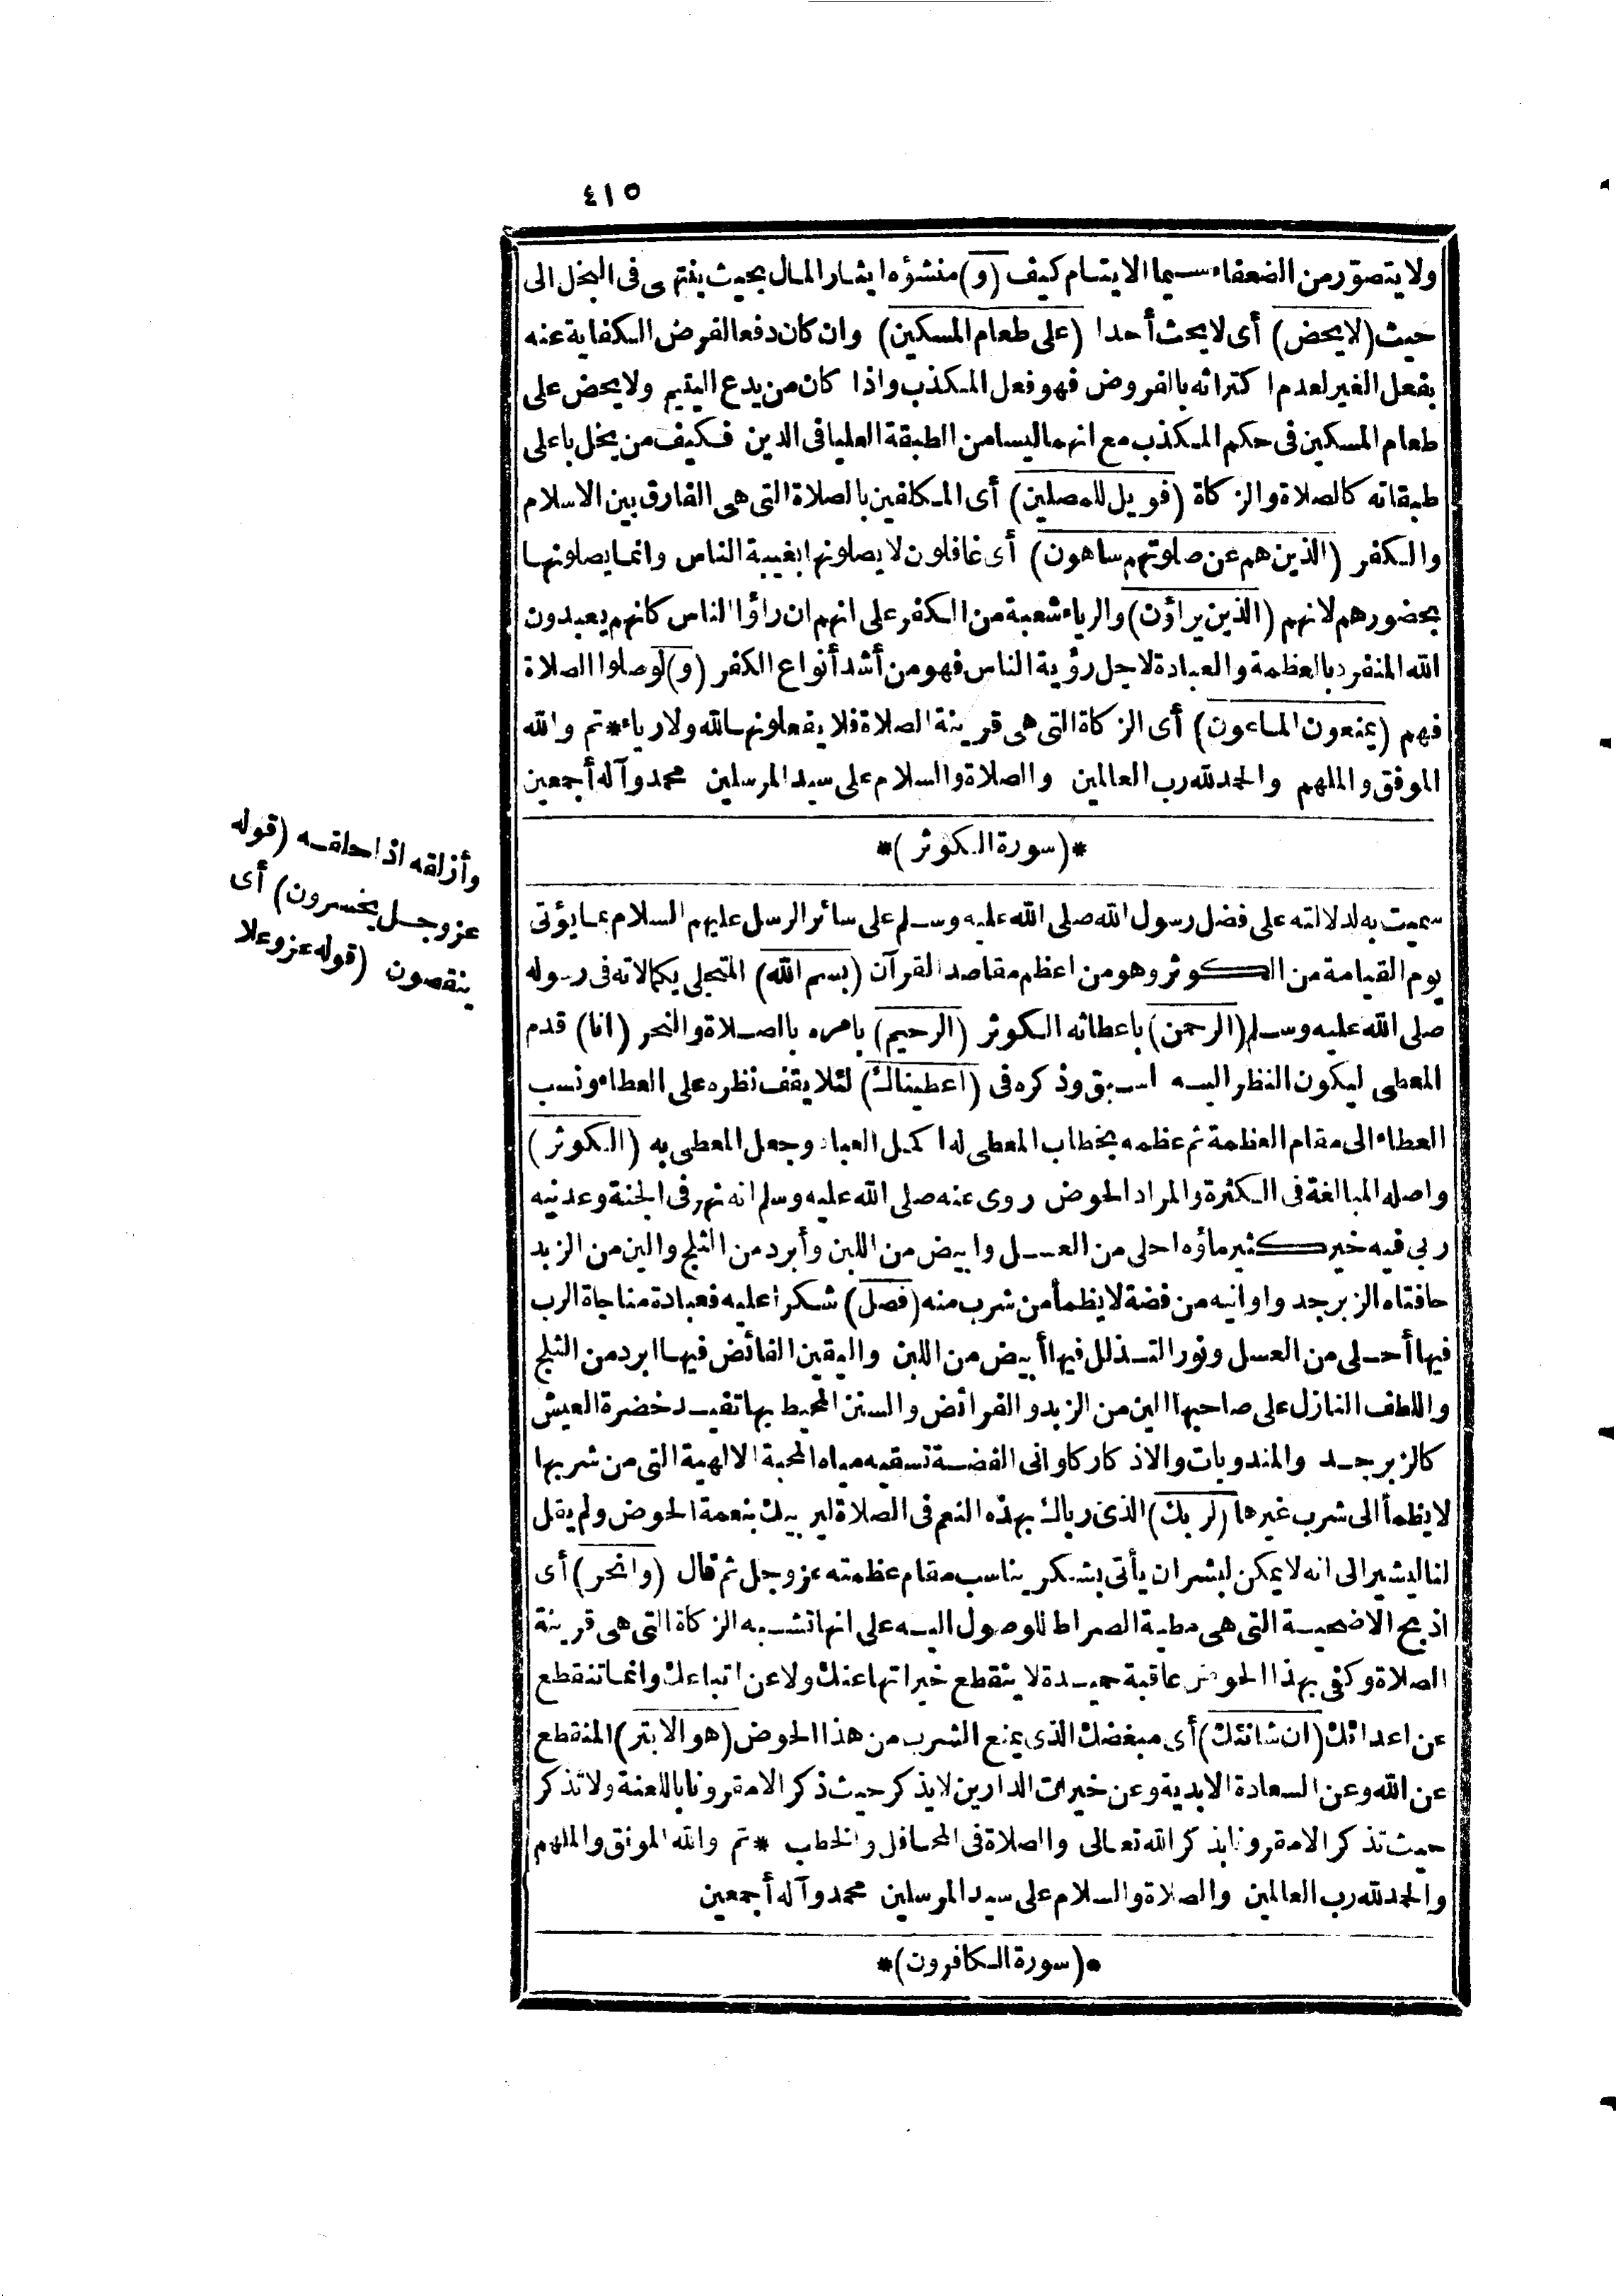 ٤١٥
ولا يتصوّر من الضعفاء سيما الايتام كيف (و) منشؤه ايثار المال بحيث ينتهى فى البخل الى
حيث (لا يحض) أى لا يحث أحدا (على طعام المسكين) وان كان دفعا لفرض الكفاية عنه
بفعل الغير لعدم اكتراثه بالفروض فهو فعل المكذب واذا كان من يدع اليتيم ولا يحض على
طعام المسكين فى حكم المكذب مع انهما ليسا من الطبقة العليا فى الدين فكيف من يخل باعلى
طبقاته كالصلاة والزكاة (فويل للمصلين) أى المكلفين بالصلاة التى هى الفارق بين الاسلام
والكفر (الذين هم عن صلوتهم ساهون) أى غافلون لا يصلونها بغيبة الناس وانما يصلونها
بحضورهم لانهم (الذين يراؤن) والرياء شعبة من الكفر على انهم ان راؤا الناس كانهم يعبدون
الله المنفرد بالعظمة والعبادة لاجل رؤية الناس فهو من أشد أنواع الكفر (و) لو صلوا الصلاة
فهم (يمنعون الماعون) أى الزكاة التى هى قرينة الصلاة فلا يفعلونها لله ولا رياء * تم والله
الموفق والملهم والحمد لله رب العالمين والصلاة والسلام على سيد المرسلين محمد وآله أجمعين
*(سورة الكوثر)*
سميت به لدلالته على فضل رسول الله صلى الله عليه وسلم على سائر الرسل عليهم السلام بما يؤتى
يوم القيامة من الكوثر وهو من اعظم مقاصد القرآن (بسم الله) المتجلى بكمالاته فى رسوله
صلى الله عليه وسلم (الرحمن) باعطائه الكوثر (الرحيم) بامره بالصلاة والنحر (انا) قدم
المعطى ليكون النظر اليه اسبق وذكره فى (اعطيناك) لئلا يقف نظره على العطاء ونسب
العطاء الى مقام العظمة ثم عظمه بخطاب المعطى له اكمل العباد وجعل المعطى به (الكوثر)
واصله المبالغة فى الكثرة والمراد الحوض روى عنه صلى الله عليه وسلم انه نهر فى الجنة وعدنيه
ربى فيه خير كثير ماؤه احلى من العسل وابيض من اللبن وأبرد من الثلج والين من الزبد
حافتاه الزبرجد واوانيه من فضة لا يظمأ من شرب منه (فصل) شكرا عليه فعبادة مناجاة الرب
فيها أحلى من العسل ونور التذلل فيها أبيض من اللبن واليقين الفائض فيها ابرد من الثلج
واللطف النازل على صاحبها الين من الزبد والفرائض والسنن المحيط بها تفيد خضرة العيش
كالزبرجد والمندوبات والاذكار كاوانى الفضة تسقيه مياه المحبة الالهية التى من شربها
لا يظمأ الى شرب غيرها (لربك) الذى رباك بهذه النعم فى الصلاة ليربيك بنعمة الحوض ولم يقل
لنا ليشير الى انه لا يمكن لبشر ان يأتى بشكر يناسب مقام عظمته عز وجل ثم قال (وانحر) أى
اذبح الاضحية التى هى مطية الصراط للوصول اليه على انها تشبه الزكاة التى هى قرينة
الصلاة وكفى بهذا الحوض عاقبة حميدة لا ينقطع خيراتها عنك ولا عن اتباعك وانما تنقطع
عن اعدائك (ان شانئك) أى مبغضك الذى يمنع الشرب من هذا الحوض (هو الابتر) المنقطع
عن الله وعن السعادة الابدية وعن خيرات الدارين لا يذكر حيث ذكر الا مقرونا باللعنة ولا تذكر
حيث تذكر الا مقرونا بذكر الله تعالى والصلاة فى المحافل والخطب * تم والله الموفق والملهم
والحمد لله رب العالمين والصلاة والسلام على سيد المرسلين محمد وآله أجمعين
*(سورة الكافرون)*
وأزلقه اذا حلقه (قوله
عز وجل يخسرون) أى
ينقصون (قوله عز وعلا